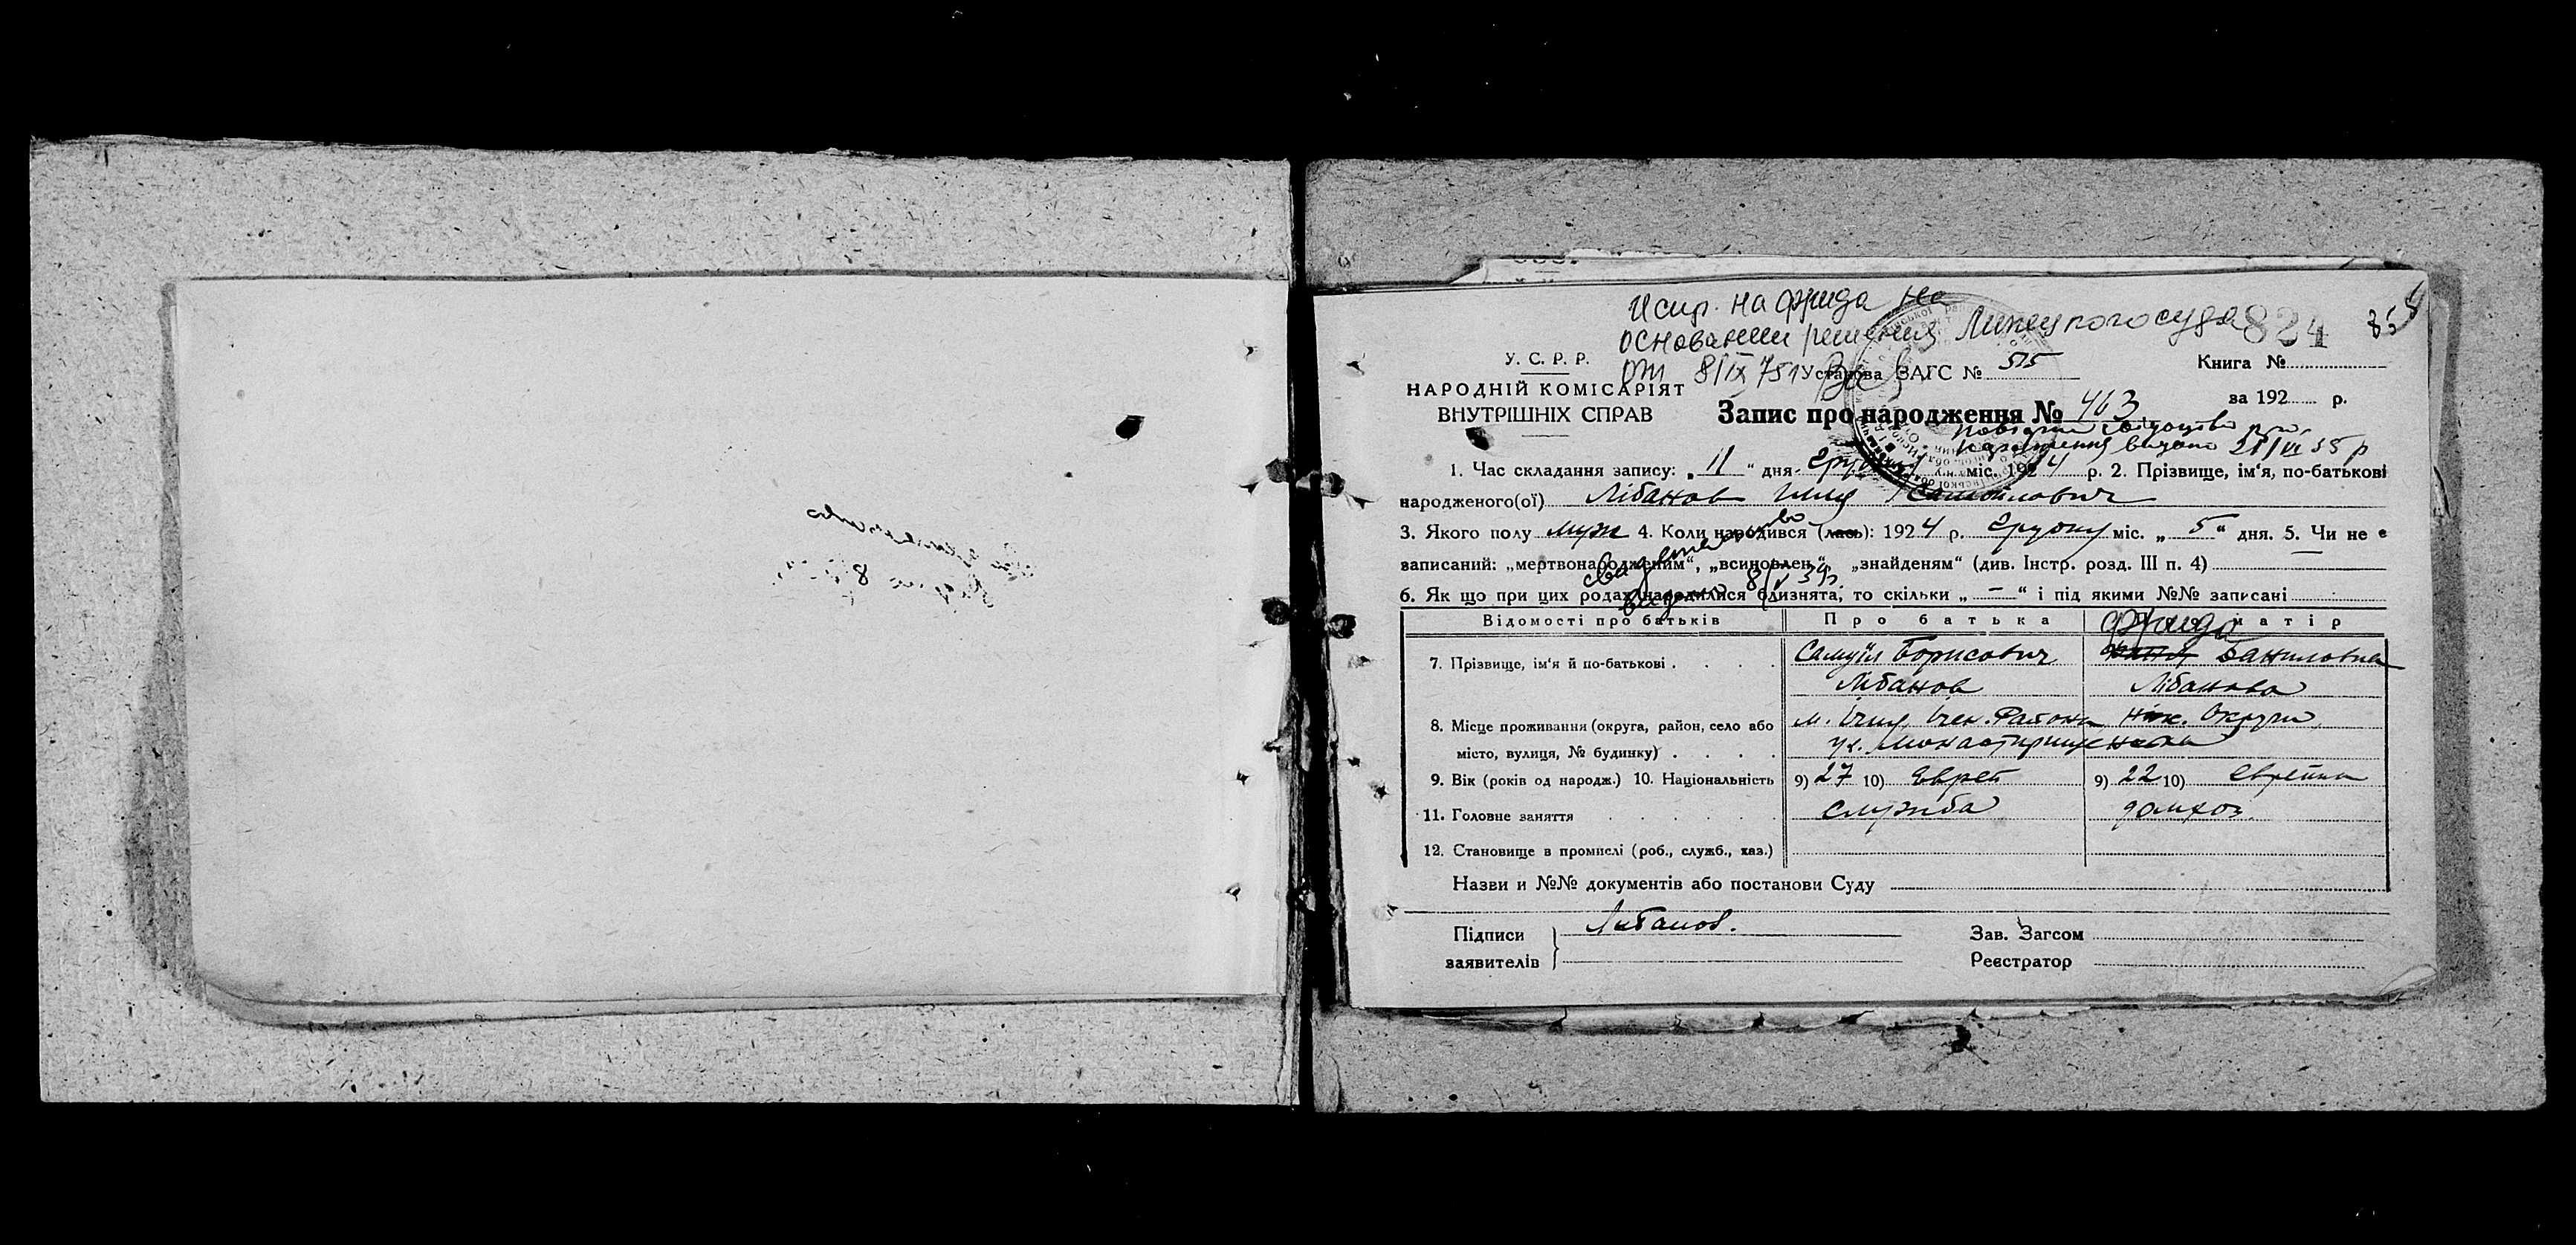 Испр. на Фрида на
основании решения Липецкого суда 824
У. С. Р. Р.
от 8/IX 751 Установа ЗАГС № 515
Книга №
НАРОДНІЙ КОМІСАРІЯТ
ВНУТРІШНІХ СПРАВ
Запис про народження № 463
за 192 р.
повторне свідоцтво про
народження видано 21/VI 35 р
1. Час складання запису: „ 11 “ дня грудня міс. 1924 р. 2. Прізвище, ім'я, по-батькові
народженого(ої) Лібанов Самойлович
3. Якого полу муж 4. Коли народився (лась): 1924 р. грудню міс. „ 5 “ дня. 5. Чи не є
записаний: „мертвонародженим“, „всиновлен“, „знайденям“ (див. Інстр. розд. III п. 4)
свидетельство
выдано 8/V 39г.
6. Як що при цих родах народилися близнята, то скільки „ — “ і під якими №№ записані
Відомості про батьків Про батька матір
Фрида
7. Прізвище, ім'я й по-батькові Самуїл Борисович
Лібанов Лібанова
8. Місце проживання (округа, район, село або м. Ічня Ічен. Района Ніж. Округи
місто, вулиця, № будинку) ук. Монастирищенська
9. Вік (років од народж.) 10. Національність 9) 27 10) Еврей 9) 22 10) Еврейка
11. Головне заняття служба домхоз.
12. Становище в промислі (роб., служб., хаз.)
Назви и №№ документів або постанови Суду
Підписи Либанов.
заявителів
Зав. Загсом
Реєстратор